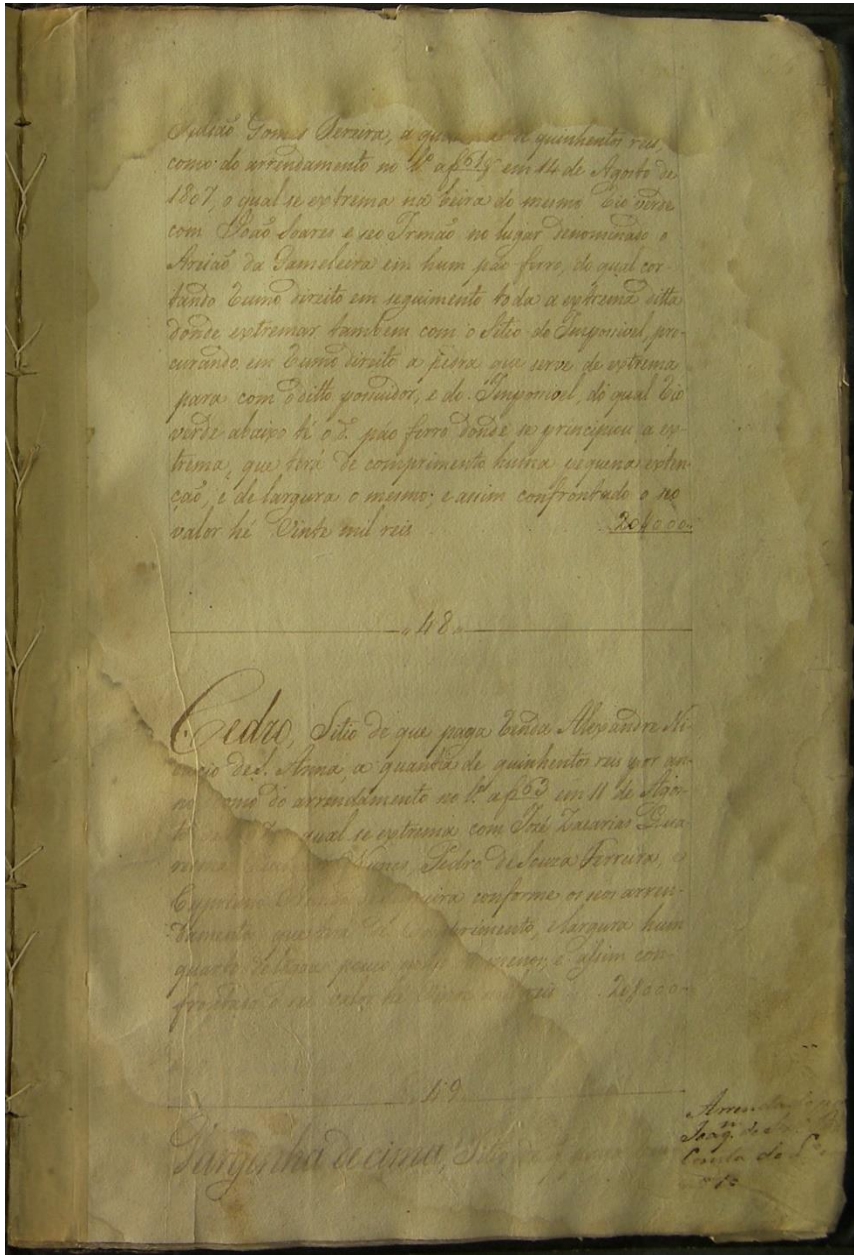 Julião Gomes Pereira, a quantia de quinhentos reis,
como do arrendamento no Lº a f 61 em 14 de Agosto de
1807, o qual se extrema na beira do mesmo Rio verde
com João Soares e seo Irmão no lugar denominado o
Areião da Gameleira em hum páo ferro, do qual cor-
tando rumo direito em seguimento toda a extrema ditta
donde extremar tambem com o Sitio do Impossivel, pro-
curando em rumo direito a pedra que serve de extrema
para com o ditto possuidor, e do Impossivel, do qual Rio
verde abaixo té o páo ferro donde se principiou a ex-
trema, que terá de comprimento huma pequena exten-
ção, e de largura o mesmo; e assim confrontado o seo
valor hé Vinte mil reis 20$000
48
Cedro, Sitio de que paga Renda Alexandre
de S. Anna, a quantia de quinhentos reis por an-
no como do arrendamento no Lº a f 63 em 11 de Agos-
qual se extrema com José Zacarias
Nunes, Pedro de Souza Ferreira, e
conforme os seos arren-
damentos que terá de comprimento, e largura hum
quarto de legoa pouco mais ou menos, e assim con-
frontado o seo valor hé Vinte mil reis 20$000
49
Varginha de cima, Sitio
Joaqᵐ de